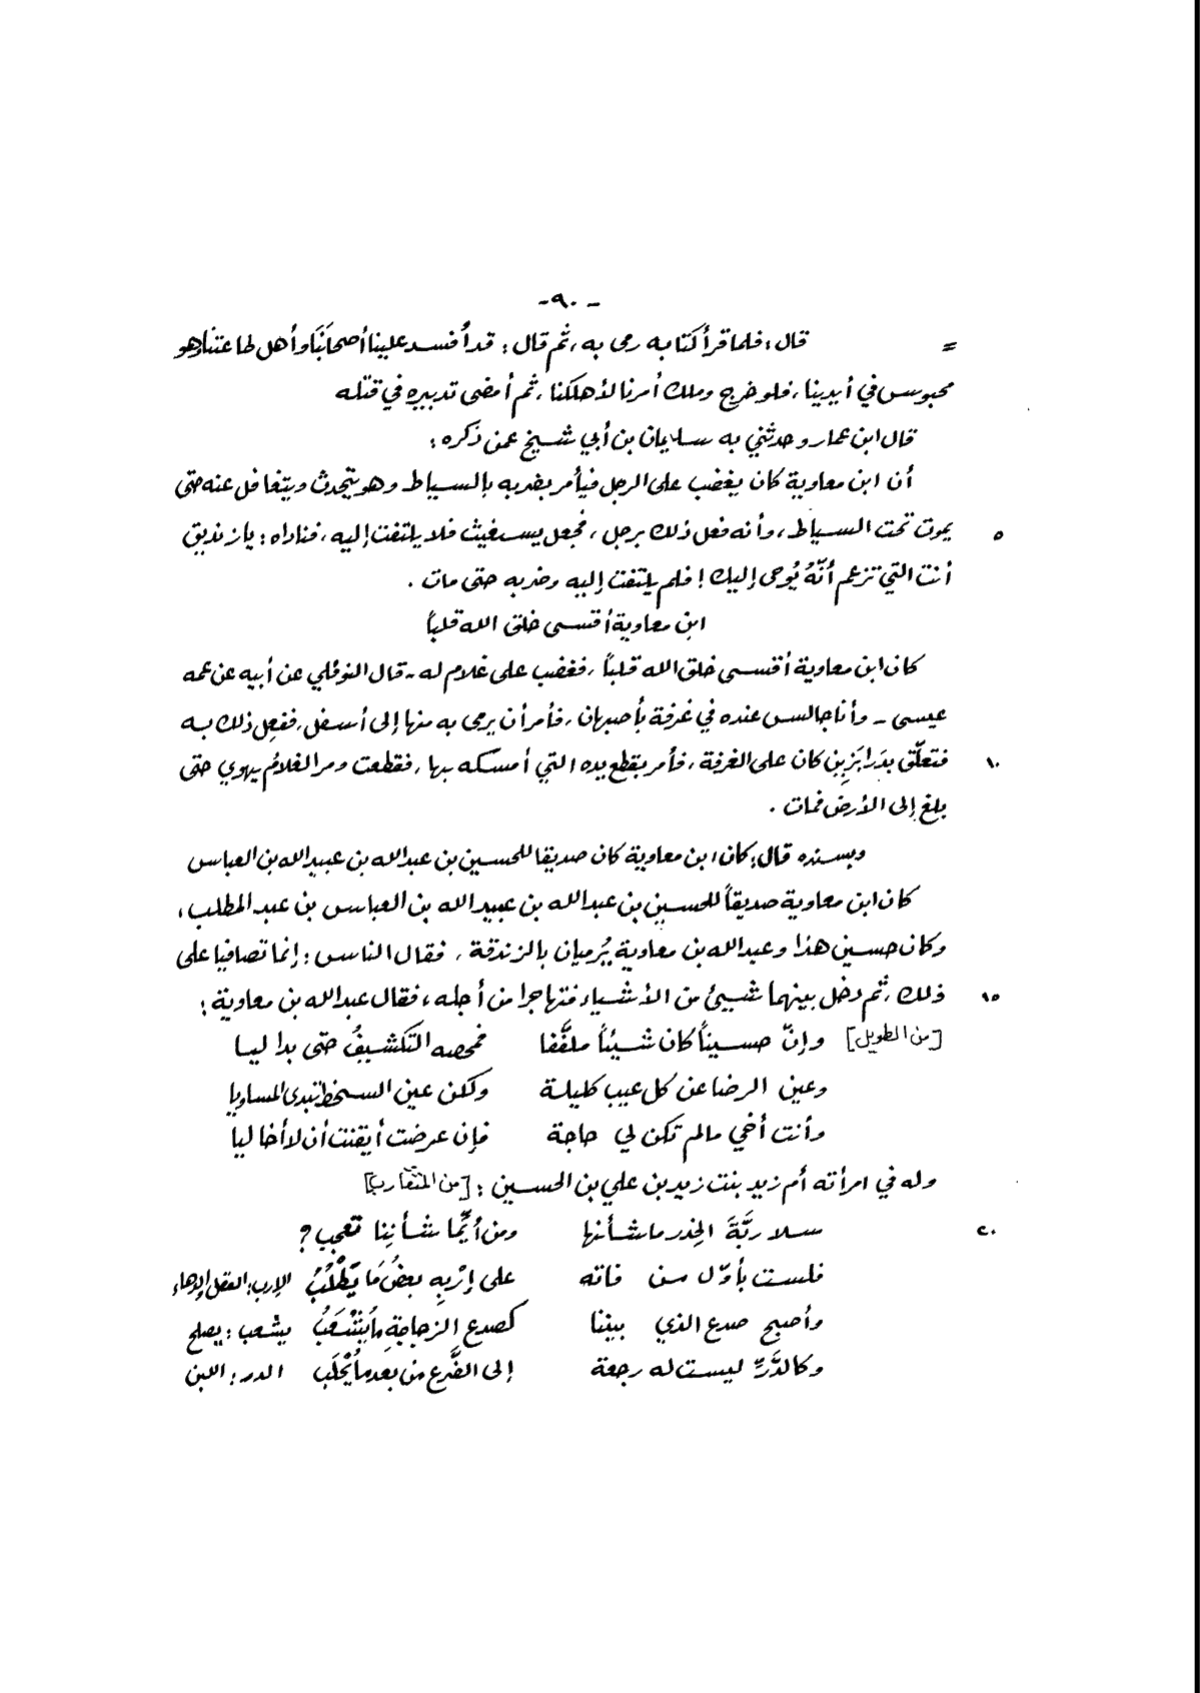 - ٩٠ -
= قال : فلما قرأ كتابه رمى به ، ثم قال : قد أفسد علينا أصحابَنَا وأهل طاعتنا وهو
محبوس في أيدينا ، فلو خرج وملك أمرنا لأهلكنا ، ثم أمضى تدبيره في قتله
قال ابن عمار وحدثني به سليمان بن أبي شيخ عمن ذكره :
أن ابن معاوية كان يغضب على الرجل فيأمر بضربه بالسياط وهو يتحدث ويتغافل عنه حتى
٥ يموت تحت السياط ، وأنه فعل ذلك برجل ، فجعل يستغيث فلا يلتفت إليه ، فناداه : يا زنديق
أنت التي تزعم أنّهُ يُوحى إليك ! فلم يلتفت إليه وضربه حتى مات .
ابن معاوية أقسى خلق الله قلباً
كان ابن معاوية أقسى خلق الله قلباً ، فغضب على غلام له - قال النوفلي عن أبيه عن عمه
عيسى - وأنا جالس عنده في غرفة بأصبهان ، فأمر أن يرمى به منها إلى أسفل ، ففعِل ذلك به
١٠ فتعلّق بدَرابَزِين كان على الغرفة ، فأمر بقطع يده التي أمسكه بها ، فقطعت ومر الغلامُ يهوي حتى
بلغ إلى الأرض فمات .
وبسنده قال : كان ابن معاوية كان صديقا للحسين بن عبدالله بن عبيدالله بن العباس
كان ابن معاوية صديقاً للحسين بن عبدالله بن عبيدالله بن العباس بن عبد المطلب ،
وكان حسين هذا وعبدالله بن معاوية يُرميان بالزندقة ، فقال الناس : إنما تصافيا على
١٥ ذلك ، ثم دخل بينهما شيئ من الأشياء فتهاجرا من أجله ، فقال عبدالله بن معاوية :
[من الطويل] وإنّ حسيناً كان شيئاً ملفَّفا فمحصه التكشيفُ حتى بدا ليا
وعين الرضا عن كل عيب كليلة ولكن عين السخط تبدي المساويا
وأنت أخي مالم تكن لي حاجة فإن عرضت أيقنت أن لا أخا ليا
وله في امرأته أم زيد بنت زيد بن علي بن الحسين : [من المتقارب]
٢٠ سلا ربَّةَ الخِدر ما شأنها ومن أيِّما شأنِنا تعجب ؟
فلست بأوّل من فاته على إرْبِهِ بعضُ مَا يَطْلُبُ الإرب : العقل والدهاء
وأصبح صدع الذي بيننا كصدع الزجاجةِ ما يُشْعَبُ يشعب : يصلح
وكالدَّرِّ ليست له رجعة إلى الضَّرع من بعدما يُحْلَب الدر : اللبن